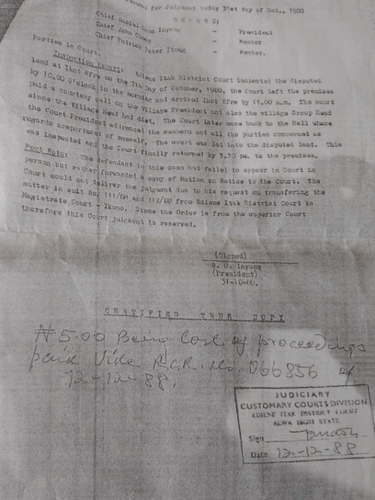 for Judgment today 31st Day of Oct., 1988
B E F O R E :
Chief - President
Chief John - Member
Chief Peter - Member.
Parties in Court.
Inspection Report: Ediene Itak District Court inspected the disputed
land at on the 7th Day of October, 1988, the Court left the premises
by 10.00 O'clock in the morning and arrived by 11.00 a.m. The court
paid a courtesy call on the Village President not also the village Group Head
since the Village Head had died. The Court later came back to the Hall where
the Court President addressed the members and all the parties concerned as
regards comportment of oneself. The court was led into the disputed land. This
was inspected and the Court finally returned by 3.30 pm. to the premises.
Foot Note: The defendant in this case had failed to appear in Court in
person but rather forwarded a copy of Motion on Notice to the Court. The
Court could not deliver the judgment due to his request on transferring the
matter in suit No. 111/88 and 112/88 from Ediene Itak District Court to
Magistrate Court - Ikono. Since the Order is from the superior Court
therefore this Court judgment is reserved.
(Signed)
(President)
31-10-88.
CERTIFIED TRUE COPY
₦5.00 Being Cost of proceedings
paid Vide R.C.R. No. 066856 of
12-12-88.
JUDICIARY
CUSTOMARY COURTS DIVISION
EDIENE ITAK DISTRICT COURT
AKWA IBOM STATE
Sign
Date 12-12-88